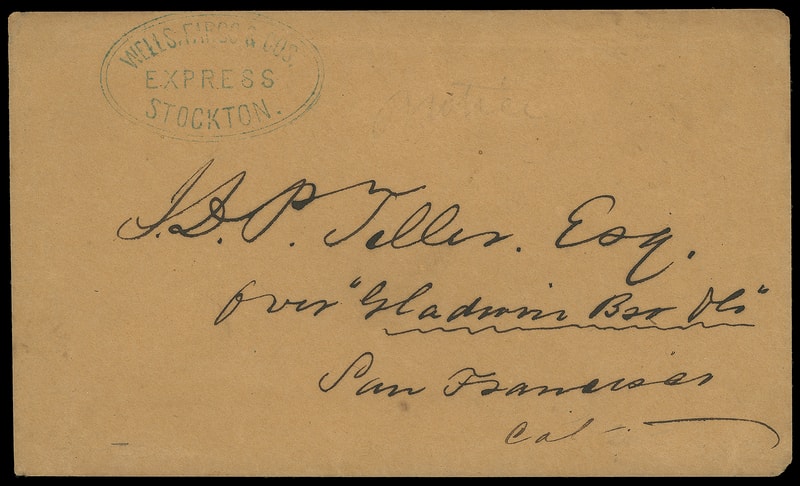 WELLS, FARGO & COS.
EXPRESS
STOCKTON.
J. D. P. Teller. Esq.
Over "Gladwin
San Francisco
Cal-.